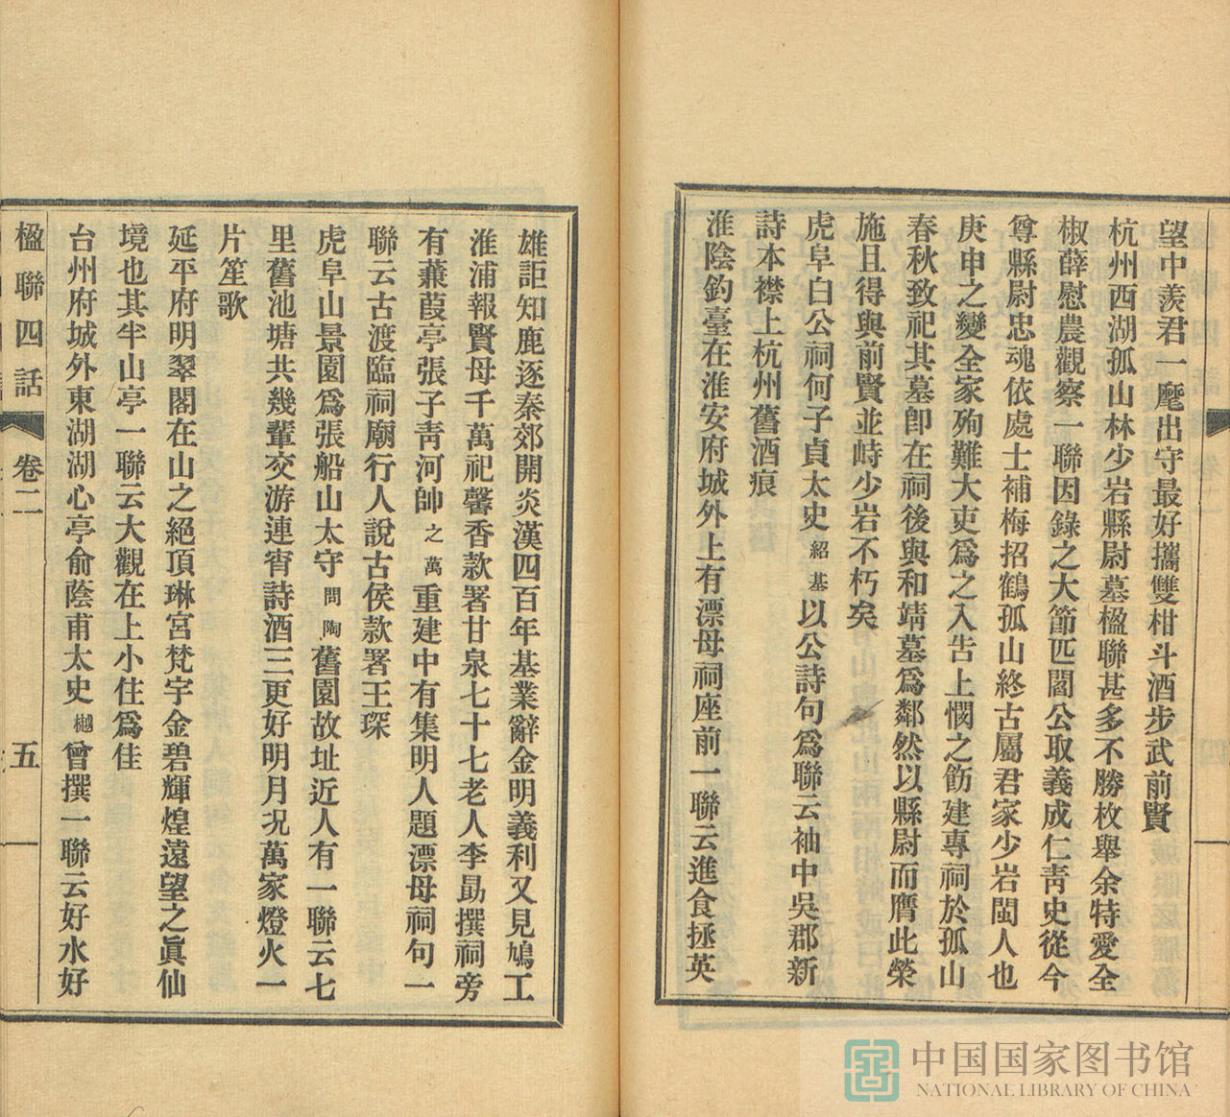 望中羨君一麾出守最好攜雙柑斗酒步武前賢
杭州西湖孤山林少岩縣尉墓楹聯甚多不勝枚舉余特愛全
椒薛慰農觀察一聯因錄之大節匹閻公取義成仁靑史從今
尊縣尉忠魂依處士補梅招鶴孤山終古屬君家少岩閩人也
庚申之變全家殉難大吏爲之入告上憫之飭建專祠於孤山
春秋致祀其墓卽在祠後與和靖墓爲鄰然以縣尉而膺此榮
施且得與前賢並峙少岩不朽矣
虎阜白公祠何子貞太史紹基以公詩句爲聯云袖中吳郡新
詩本襟上杭州舊酒痕
淮陰釣臺在淮安府城外上有漂母祠座前一聯云進食拯英
雄詎知鹿逐秦郊開炎漢四百年基業辭金明義利又見鳩工
淮浦報賢母千萬祀馨香款署甘泉七十七老人李勗撰祠旁
有蒹葭亭張子靑河帥之萬重建中有集明人題漂母祠句一
聯云古渡臨祠廟行人說古侯款署王琛
虎阜山景園爲張船山太守問陶舊園故址近人有一聯云七
里舊池塘共幾輩交游連宵詩酒三更好明月况萬家燈火一
片笙歌
延平府明翠閣在山之絕頂琳宮梵宇金碧輝煌遠望之眞仙
境也其半山亭一聯云大觀在上小住爲佳
台州府城外東湖湖心亭俞蔭甫太史樾曾撰一聯云好水好
楹聯四話 卷二 五
中国国家图书馆
NATIONAL LIBRARY OF CHINA